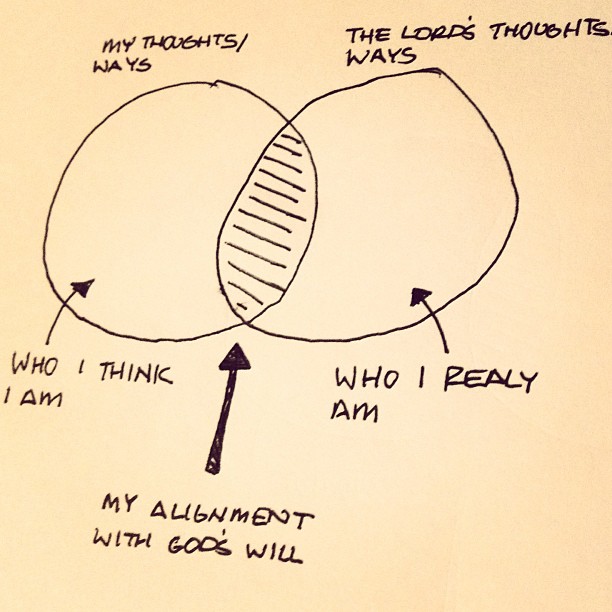 MY THOUGHTS/
WAYS
THE LORD'S THOUGHTS/
WAYS
WHO I THINK
I AM
WHO I REALY
AM
MY ALIGNMENT
WITH GOD'S WILL